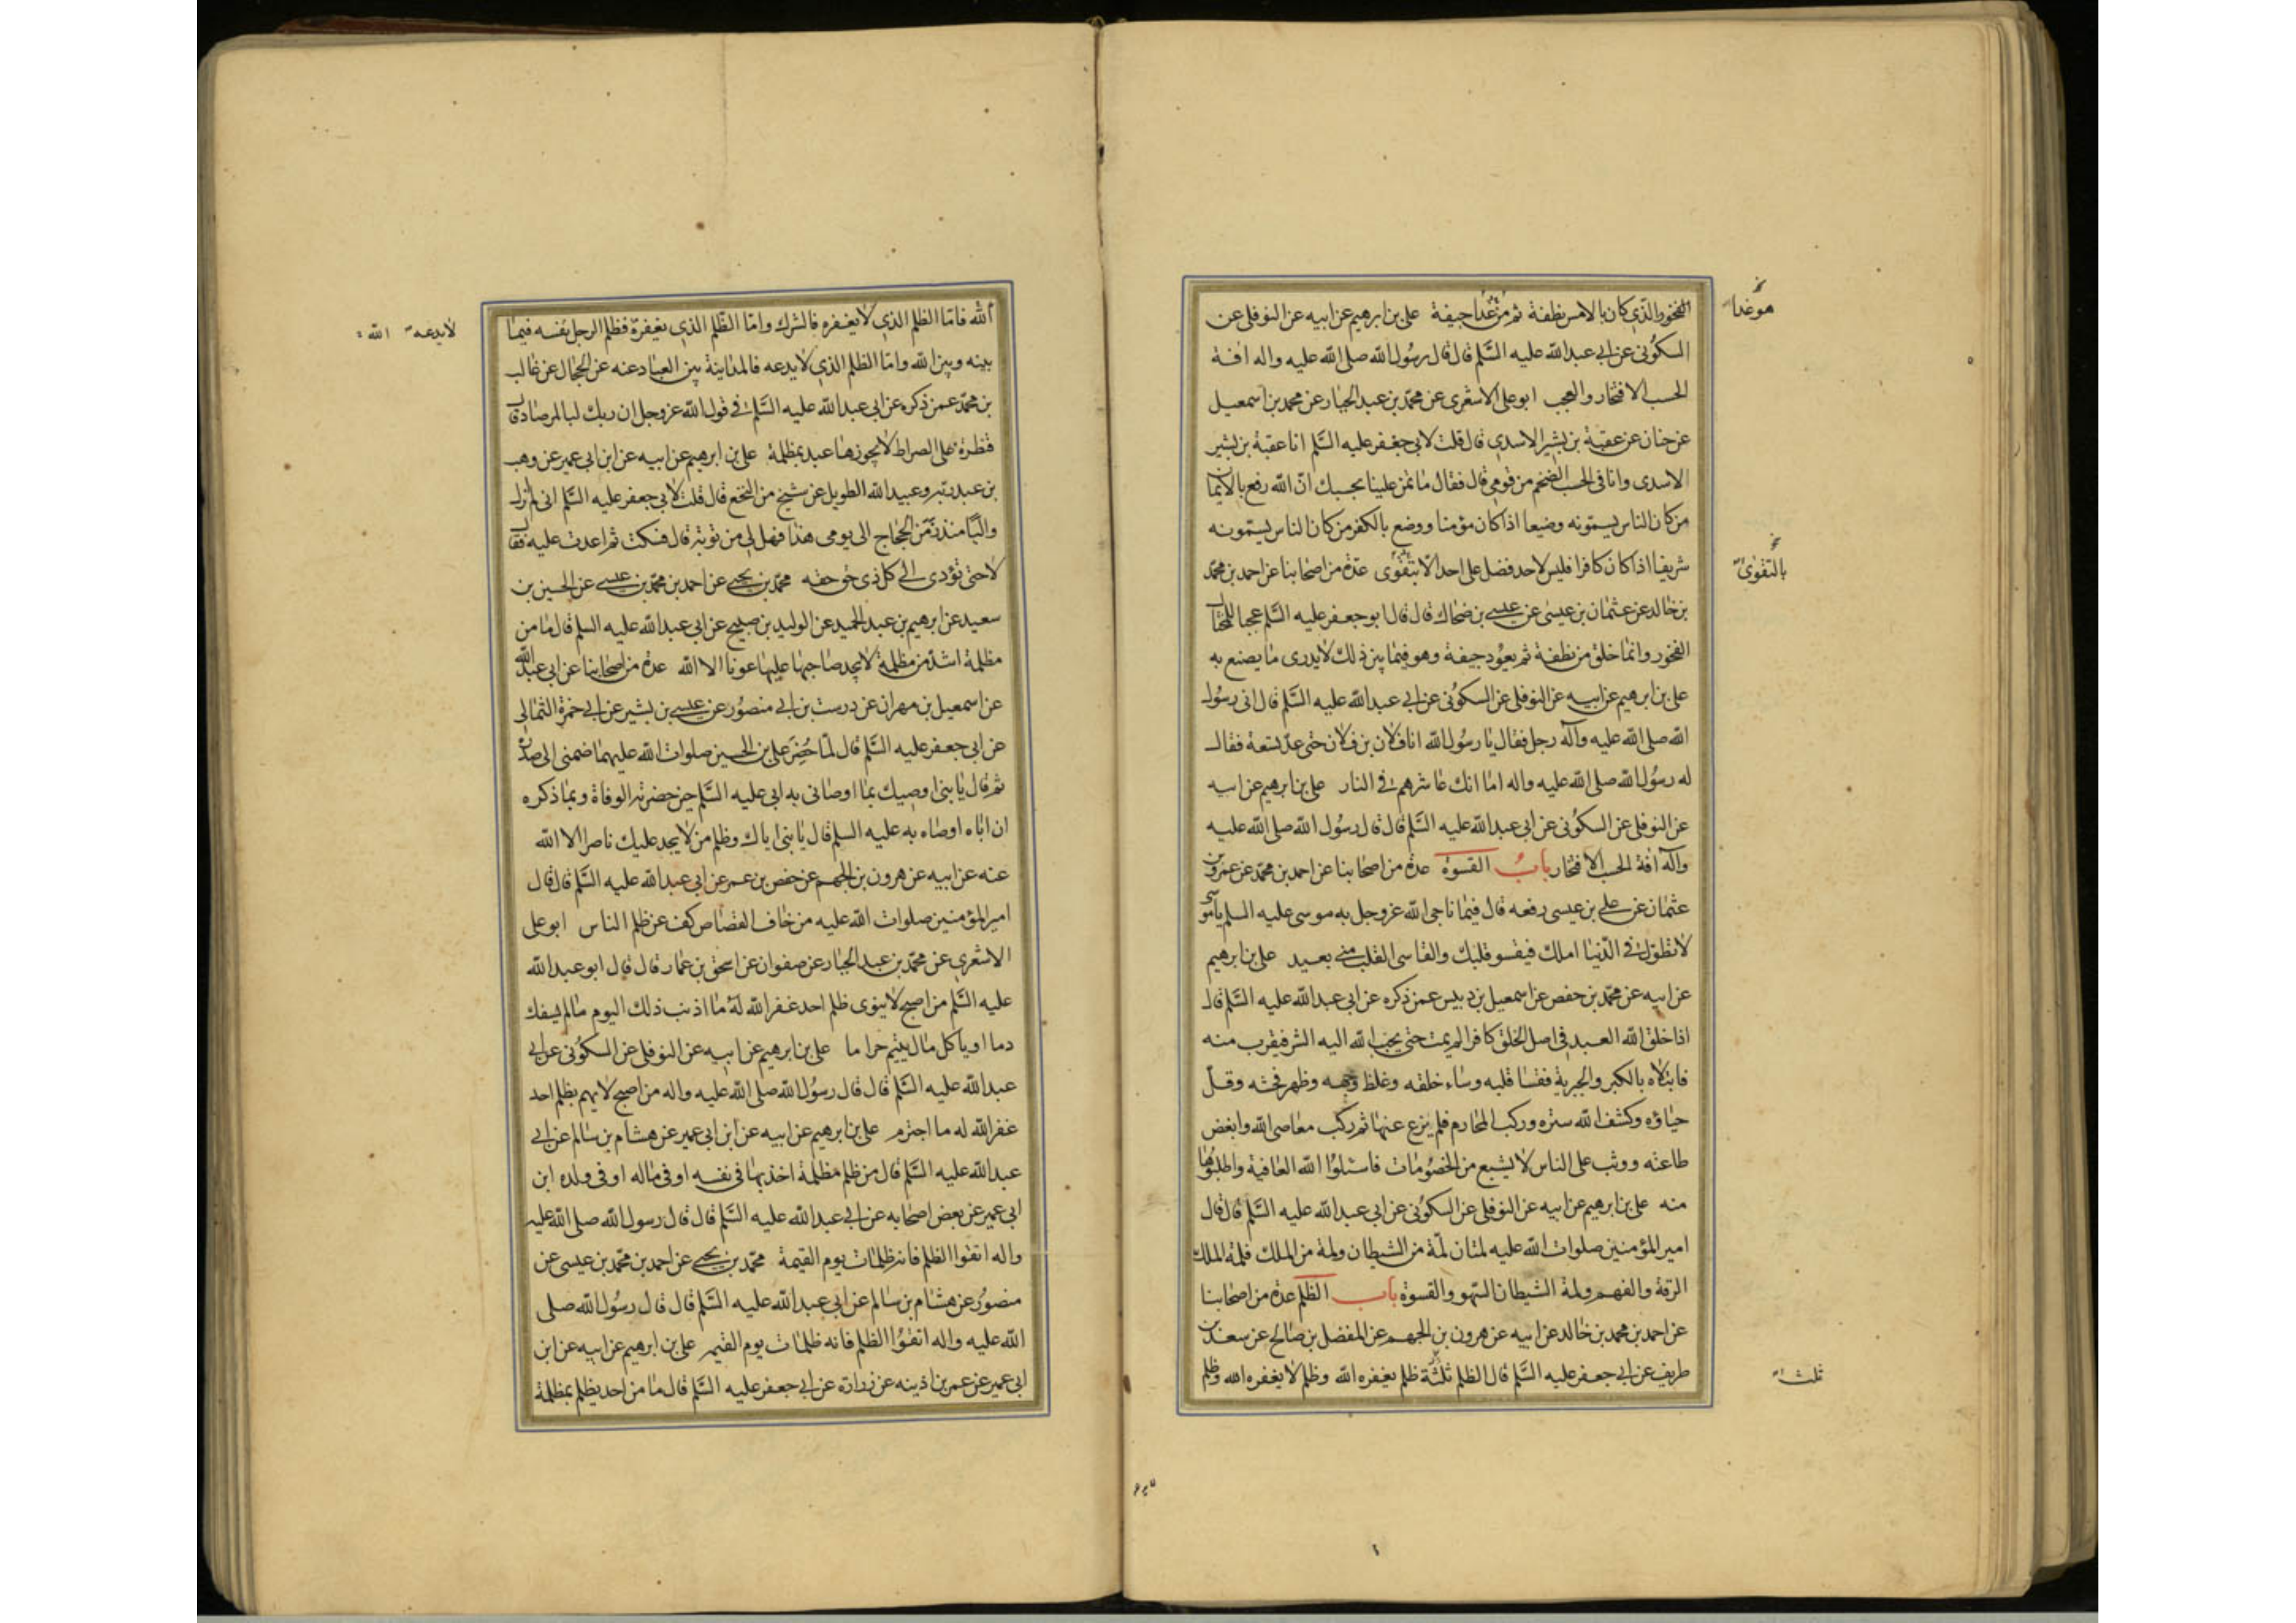 الفخور الذي كان بالامس نطفة ثم من غدا جيفة علي بن ابرهيم عن ابيه عن النوفلي عن
هو غدا
السكوني عن ابي عبد الله عليه السلم قال قال رسول الله صلى الله عليه واله افة
الحسب الافتخار والعجب ابو علي الاشعري عن محمد بن عبد الجبار عن محمد بن اسمعيل
عن حنان عن عقبة بن بشير الاسدي قال قلت لابي جعفر عليه السلم انا عقبة بن بشير
الاسدي وانا في الحسب الضخم من قومي قال فقال ما تمن علينا بحسبك ان الله رفع بالايمان
من كان الناس يسمونه وضيعا اذا كان مؤمنا ووضع بالكفر من كان الناس يسمونه
شريفا اذا كان كافرا فليس لاحد فضل على احد الا بتقوى عدة من اصحابنا عن احمد بن محمد
بالتقوى
بن خالد عن عثمان بن عيسى عن عيسى بن ضحاك قال قال ابو جعفر عليه السلم عجبا للمختال
الفخور وانما خلق من نطفة ثم يعود جيفة وهو فيما بين ذلك لا يدري ما يصنع به
علي بن ابرهيم عن ابيه عن النوفلي عن السكوني عن ابي عبد الله عليه السلم قال اتى رسول
الله صلى الله عليه وآله رجل فقال يا رسول الله انا فلان بن فلان حتى عد تسعة فقال
له رسول الله صلى الله عليه واله اما انك عاشرهم في النار علي بن ابرهيم عن ابيه
عن النوفلي عن السكوني عن ابي عبد الله عليه السلم قال قال رسول الله صلى الله عليه
وآله افة الحسب الافتخار باب القسوة عدة من اصحابنا عن احمد بن محمد عن عمرو بن
عثمان عن علي بن عيسى رفعه قال فيما ناجى الله عز وجل به موسى عليه السلم يا موسى
لا تطول في الدنيا املك فيقسو قلبك والقاسي القلب مني بعيد علي بن ابرهيم
عن ابيه عن محمد بن حفص عن اسمعيل بن دبيس عمن ذكره عن ابي عبد الله عليه السلم قال
اذا خلق الله العبد في اصل الخلق كافرا لم يمت حتى يحبب الله اليه الشر فيقرب منه
فابتلاه بالكبر والجبرية فقسا قلبه وساء خلقه وغلظ وجهه وظهر فحشه وقل
حياؤه وكشف الله ستره وركب المحارم فلم ينزع عنها ثم ركب معاصي الله وابغض
طاعته ووثب على الناس لا يشبع من الخصومات فاسئلوا الله العافية واطلبوها
منه علي بن ابرهيم عن ابيه عن النوفلي عن السكوني عن ابي عبد الله عليه السلم قال قال
امير المؤمنين صلوات الله عليه لمتان لمة من الشيطان ولمة من الملك فلمة الملك
الرقة والفهم ولمة الشيطان السهو والقسوة باب الظلم عدة من اصحابنا
عن احمد بن محمد بن خالد عن ابيه عن هرون بن الجهم عن المفضل بن صالح عن سعد بن
طريف عن ابي جعفر عليه السلم قال الظلم ثلثة ظلم يغفره الله وظلم لا يغفره الله وظلم
ثلث
الله فاما الظلم الذي لا يغفره فالشرك واما الظلم الذي يغفره فظلم الرجل نفسه فيما
لا يدعه الله
بينه وبين الله واما الظلم الذي لا يدعه فالمداينة بين العباد عنه عن الحجال عن غالب
بن محمد عمن ذكره عن ابي عبد الله عليه السلم في قول الله عز وجل ان ربك لبالمرصاد قال
قنطرة على الصراط لا يجوزها عبد بمظلمة علي بن ابرهيم عن ابيه عن ابن ابي عمير عن وهب
بن عبد ربه وعبيد الله الطويل عن شيخ من النخع قال قلت لابي جعفر عليه السلم اني لم ازل
واليا منذ زمن الحجاج الى يومي هذا فهل لي من توبة قال فسكت ثم اعدت عليه فقال
لا حتى تؤدي الى كل ذي حق حقه محمد بن يحيى عن احمد بن محمد بن عيسى عن الحسين بن
سعيد عن ابرهيم بن عبد الحميد عن الوليد بن صبيح عن ابي عبد الله عليه السلم قال ما من
مظلمة اشد من مظلمة لا يجد صاحبها عليها عونا الا الله عدة من اصحابنا عن ابي عبد الله
عن اسمعيل بن مهران عن درست بن ابي منصور عن عيسى بن بشير عن ابي حمزة الثمالي
عن ابي جعفر عليه السلم قال لما حضر علي بن الحسين صلوات الله عليهما ضمني الى صدره
ثم قال يا بني اوصيك بما اوصاني به ابي عليه السلم حين حضرته الوفاة وبما ذكره
ان اباه اوصاه به عليه السلم قال يا بني اياك وظلم من لا يجد عليك ناصرا الا الله
عنه عن ابيه عن هرون بن الجهم عن حفص بن عمر عن ابي عبد الله عليه السلم قال قال
امير المؤمنين صلوات الله عليه من خاف القصاص كف عن ظلم الناس ابو علي
الاشعري عن محمد بن عبد الجبار عن صفوان عن اسحق بن عمار قال قال ابو عبد الله
عليه السلم من اصبح لا ينوي ظلم احد غفر الله له ما اذنب ذلك اليوم ما لم يسفك
دما او ياكل مال يتيم حراما علي بن ابرهيم عن ابيه عن النوفلي عن السكوني عن ابي
عبد الله عليه السلم قال قال رسول الله صلى الله عليه واله من اصبح لا يهم بظلم احد
غفر الله له ما اجترم علي بن ابرهيم عن ابيه عن ابن ابي عمير عن هشام بن سالم عن ابي
عبد الله عليه السلم قال من ظلم مظلمة اخذ بها في نفسه او في ماله او في ولده ابن
ابي عمير عن بعض اصحابه عن ابي عبد الله عليه السلم قال قال رسول الله صلى الله عليه
واله اتقوا الظلم فانه ظلمات يوم القيمة محمد بن يحيى عن احمد بن محمد بن عيسى عن
منصور عن هشام بن سالم عن ابي عبد الله عليه السلم قال قال رسول الله صلى
الله عليه واله اتقوا الظلم فانه ظلمات يوم القيمة علي بن ابرهيم عن ابيه عن ابن
ابي عمير عن عمر بن اذينه عن زرارة عن ابي جعفر عليه السلم قال ما من احد يظلم بمظلمة